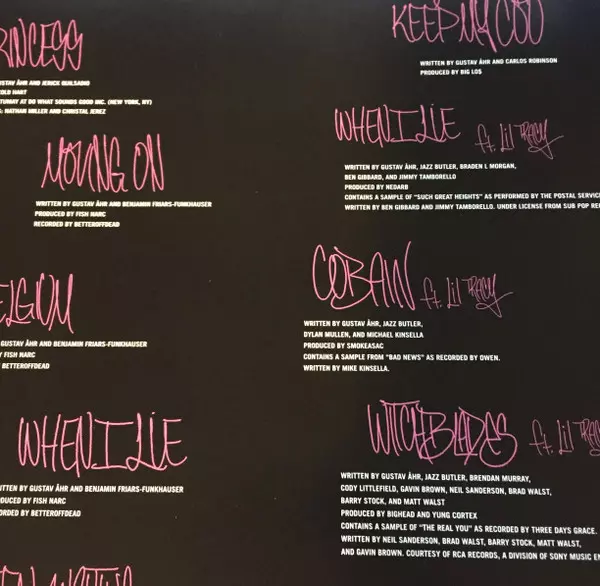 RINCESS
GUSTAV ÅHR AND JERICK QUILSADIO
COLD HART
AT DO WHAT SOUNDS GOOD INC. (NEW YORK, NY)
NATHAN MILLER AND CHRISTAL JEREZ
MOVING ON
WRITTEN BY GUSTAV ÅHR AND BENJAMIN FRIARS-FUNKHAUSER
PRODUCED BY FISH NARC
RECORDED BY BETTEROFFDEAD
ELGIUM
GUSTAV ÅHR AND BENJAMIN FRIARS-FUNKHAUSER
BY FISH NARC
BY BETTEROFFDEAD
WHEN I LIE
ITTEN BY GUSTAV ÅHR AND BENJAMIN FRIARS-FUNKHAUSER
ODUCED BY FISH NARC
CORDED BY BETTEROFFDEAD
KEEP MY COO
WRITTEN BY GUSTAV ÅHR AND CARLOS ROBINSON
PRODUCED BY BIG LOS
WHEN I LIE ft. LIL TRACY
WRITTEN BY GUSTAV ÅHR, JAZZ BUTLER, BRADEN L MORGAN,
BEN GIBBARD, AND JIMMY TAMBORELLO
PRODUCED BY NEDARB
CONTAINS A SAMPLE OF "SUCH GREAT HEIGHTS" AS PERFORMED BY THE POSTAL SERVIC
WRITTEN BY BEN GIBBARD AND JIMMY TAMBORELLO. UNDER LICENSE FROM SUB POP REC
COBAIN ft. LIL TRACY
WRITTEN BY GUSTAV ÅHR, JAZZ BUTLER,
DYLAN MULLEN, AND MICHAEL KINSELLA
PRODUCED BY SMOKEASAC
CONTAINS A SAMPLE FROM "BAD NEWS" AS RECORDED BY OWEN.
WRITTEN BY MIKE KINSELLA.
WITCHBLADES ft. LIL TRAC
WRITTEN BY GUSTAV ÅHR, JAZZ BUTLER, BRENDAN MURRAY,
CODY LITTLEFIELD, GAVIN BROWN, NEIL SANDERSON, BRAD WALST,
BARRY STOCK, AND MATT WALST
PRODUCED BY BIGHEAD AND YUNG CORTEX
CONTAINS A SAMPLE OF "THE REAL YOU" AS RECORDED BY THREE DAYS GRACE.
WRITTEN BY NEIL SANDERSON, BRAD WALST, BARRY STOCK, MATT WALST,
AND GAVIN BROWN. COURTESY OF RCA RECORDS, A DIVISION OF SONY MUSIC EN